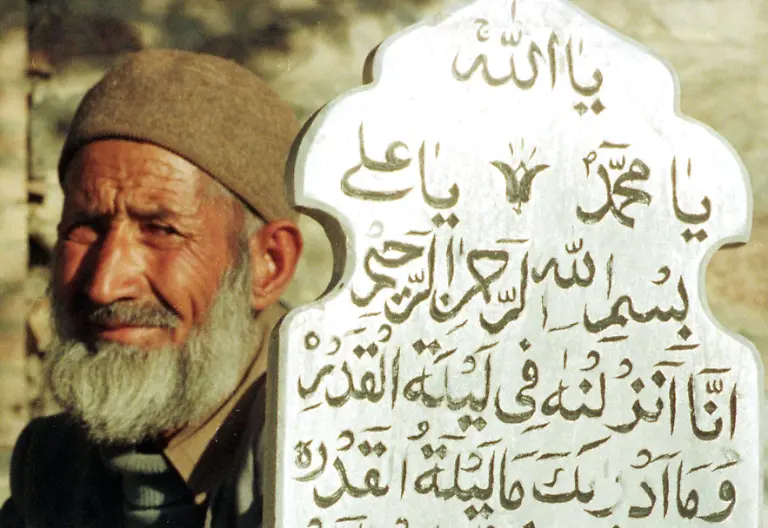 يا الله
يا محمد يا علي
بِسْمِ اللهِ الرَّحْمٰنِ الرَّحِيْمِ
اِنَّا اَنْزَلْنٰهُ فِي لَيْلَةِ الْقَدْرِ
وَمَا اَدْرٰىكَ مَا لَيْلَةُ الْقَدْرِ